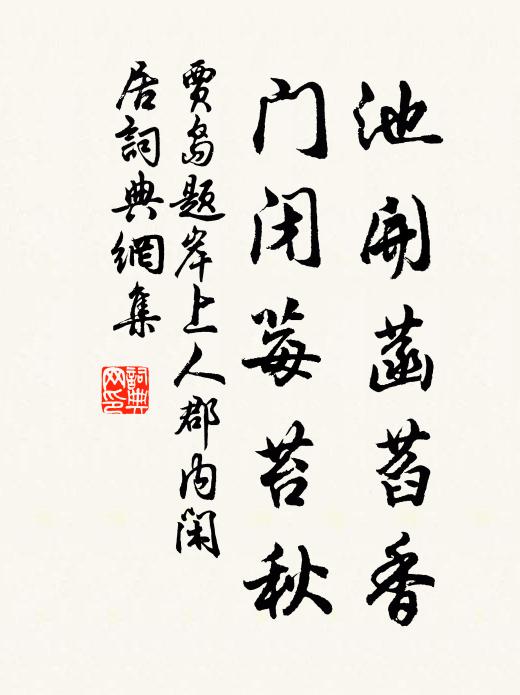 池開菡萏香
门闭莓苔秋
贾岛题岸上人郡内闲
居詞典網集
詞典
网印